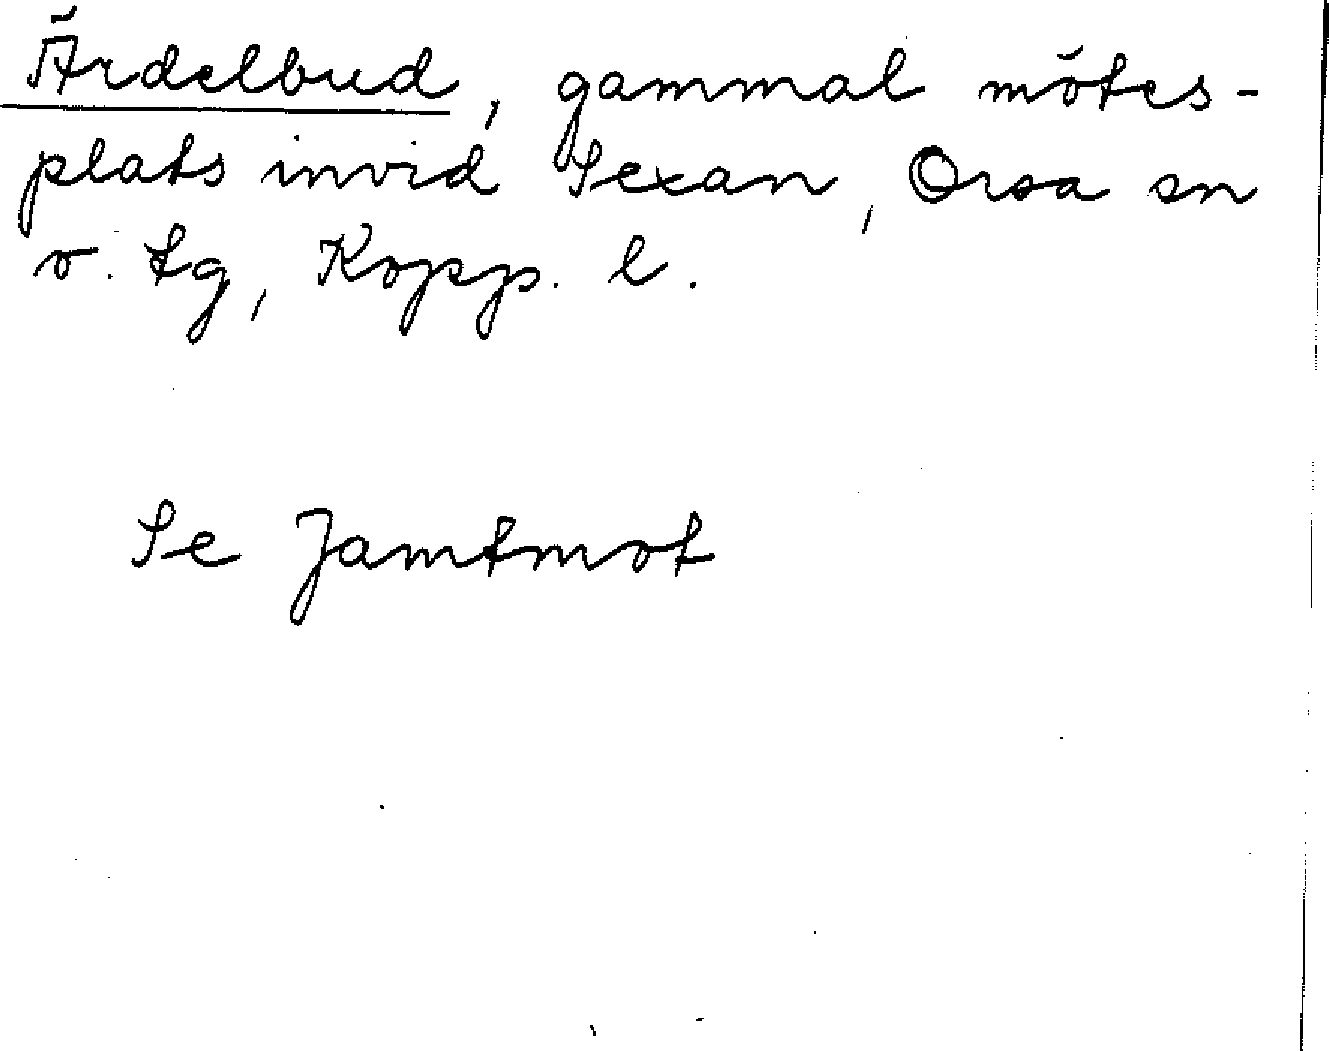 Ärdelbud, gammal mötes-
plats invid Sexan, Orsa sn
o. tg, Kopp. l.
Se Jamtmot